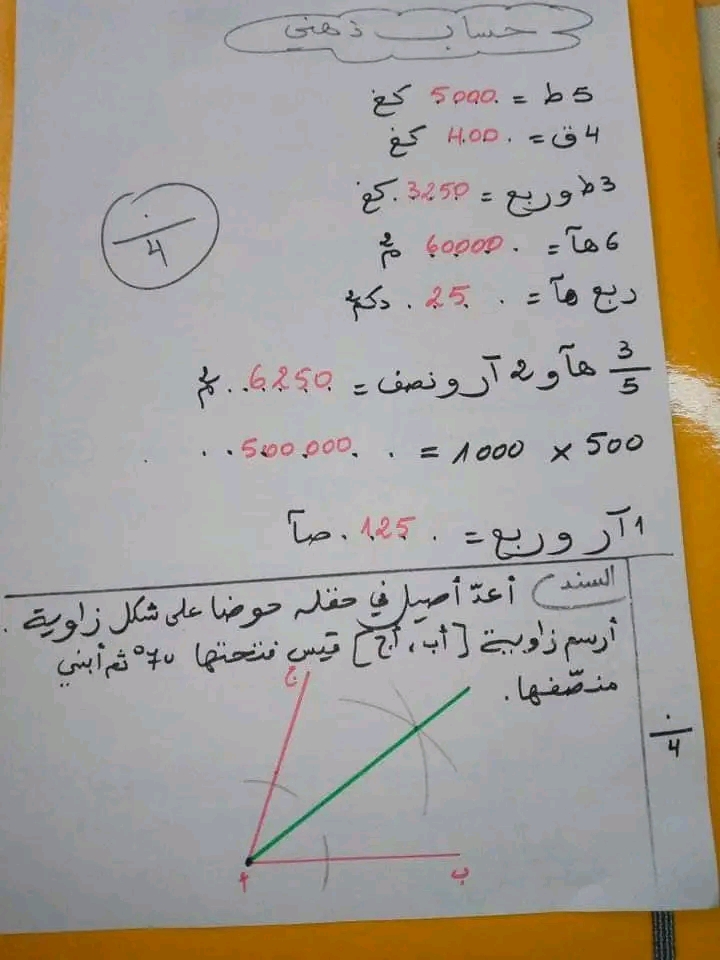 حساب ذهني
5 ط = 5000 كغ
4 ق = 400 كغ
3 ط وربع = 3250 كغ
6 هآ = 60000 م²
ربع هآ = 25 دكم²
3/5 هآ و 2 آر ونصف = 6250 م²
500 × 1000 = 500.000
1 آر وربع = 125 صآ
./4
السند أعدّ أصيل في حقله حوضا على شكل زاوية.
أرسم زاوية [أب، أج] قيس فتحتها 70° ثم أبني
منصّفها.
./4
ج
أ
ب